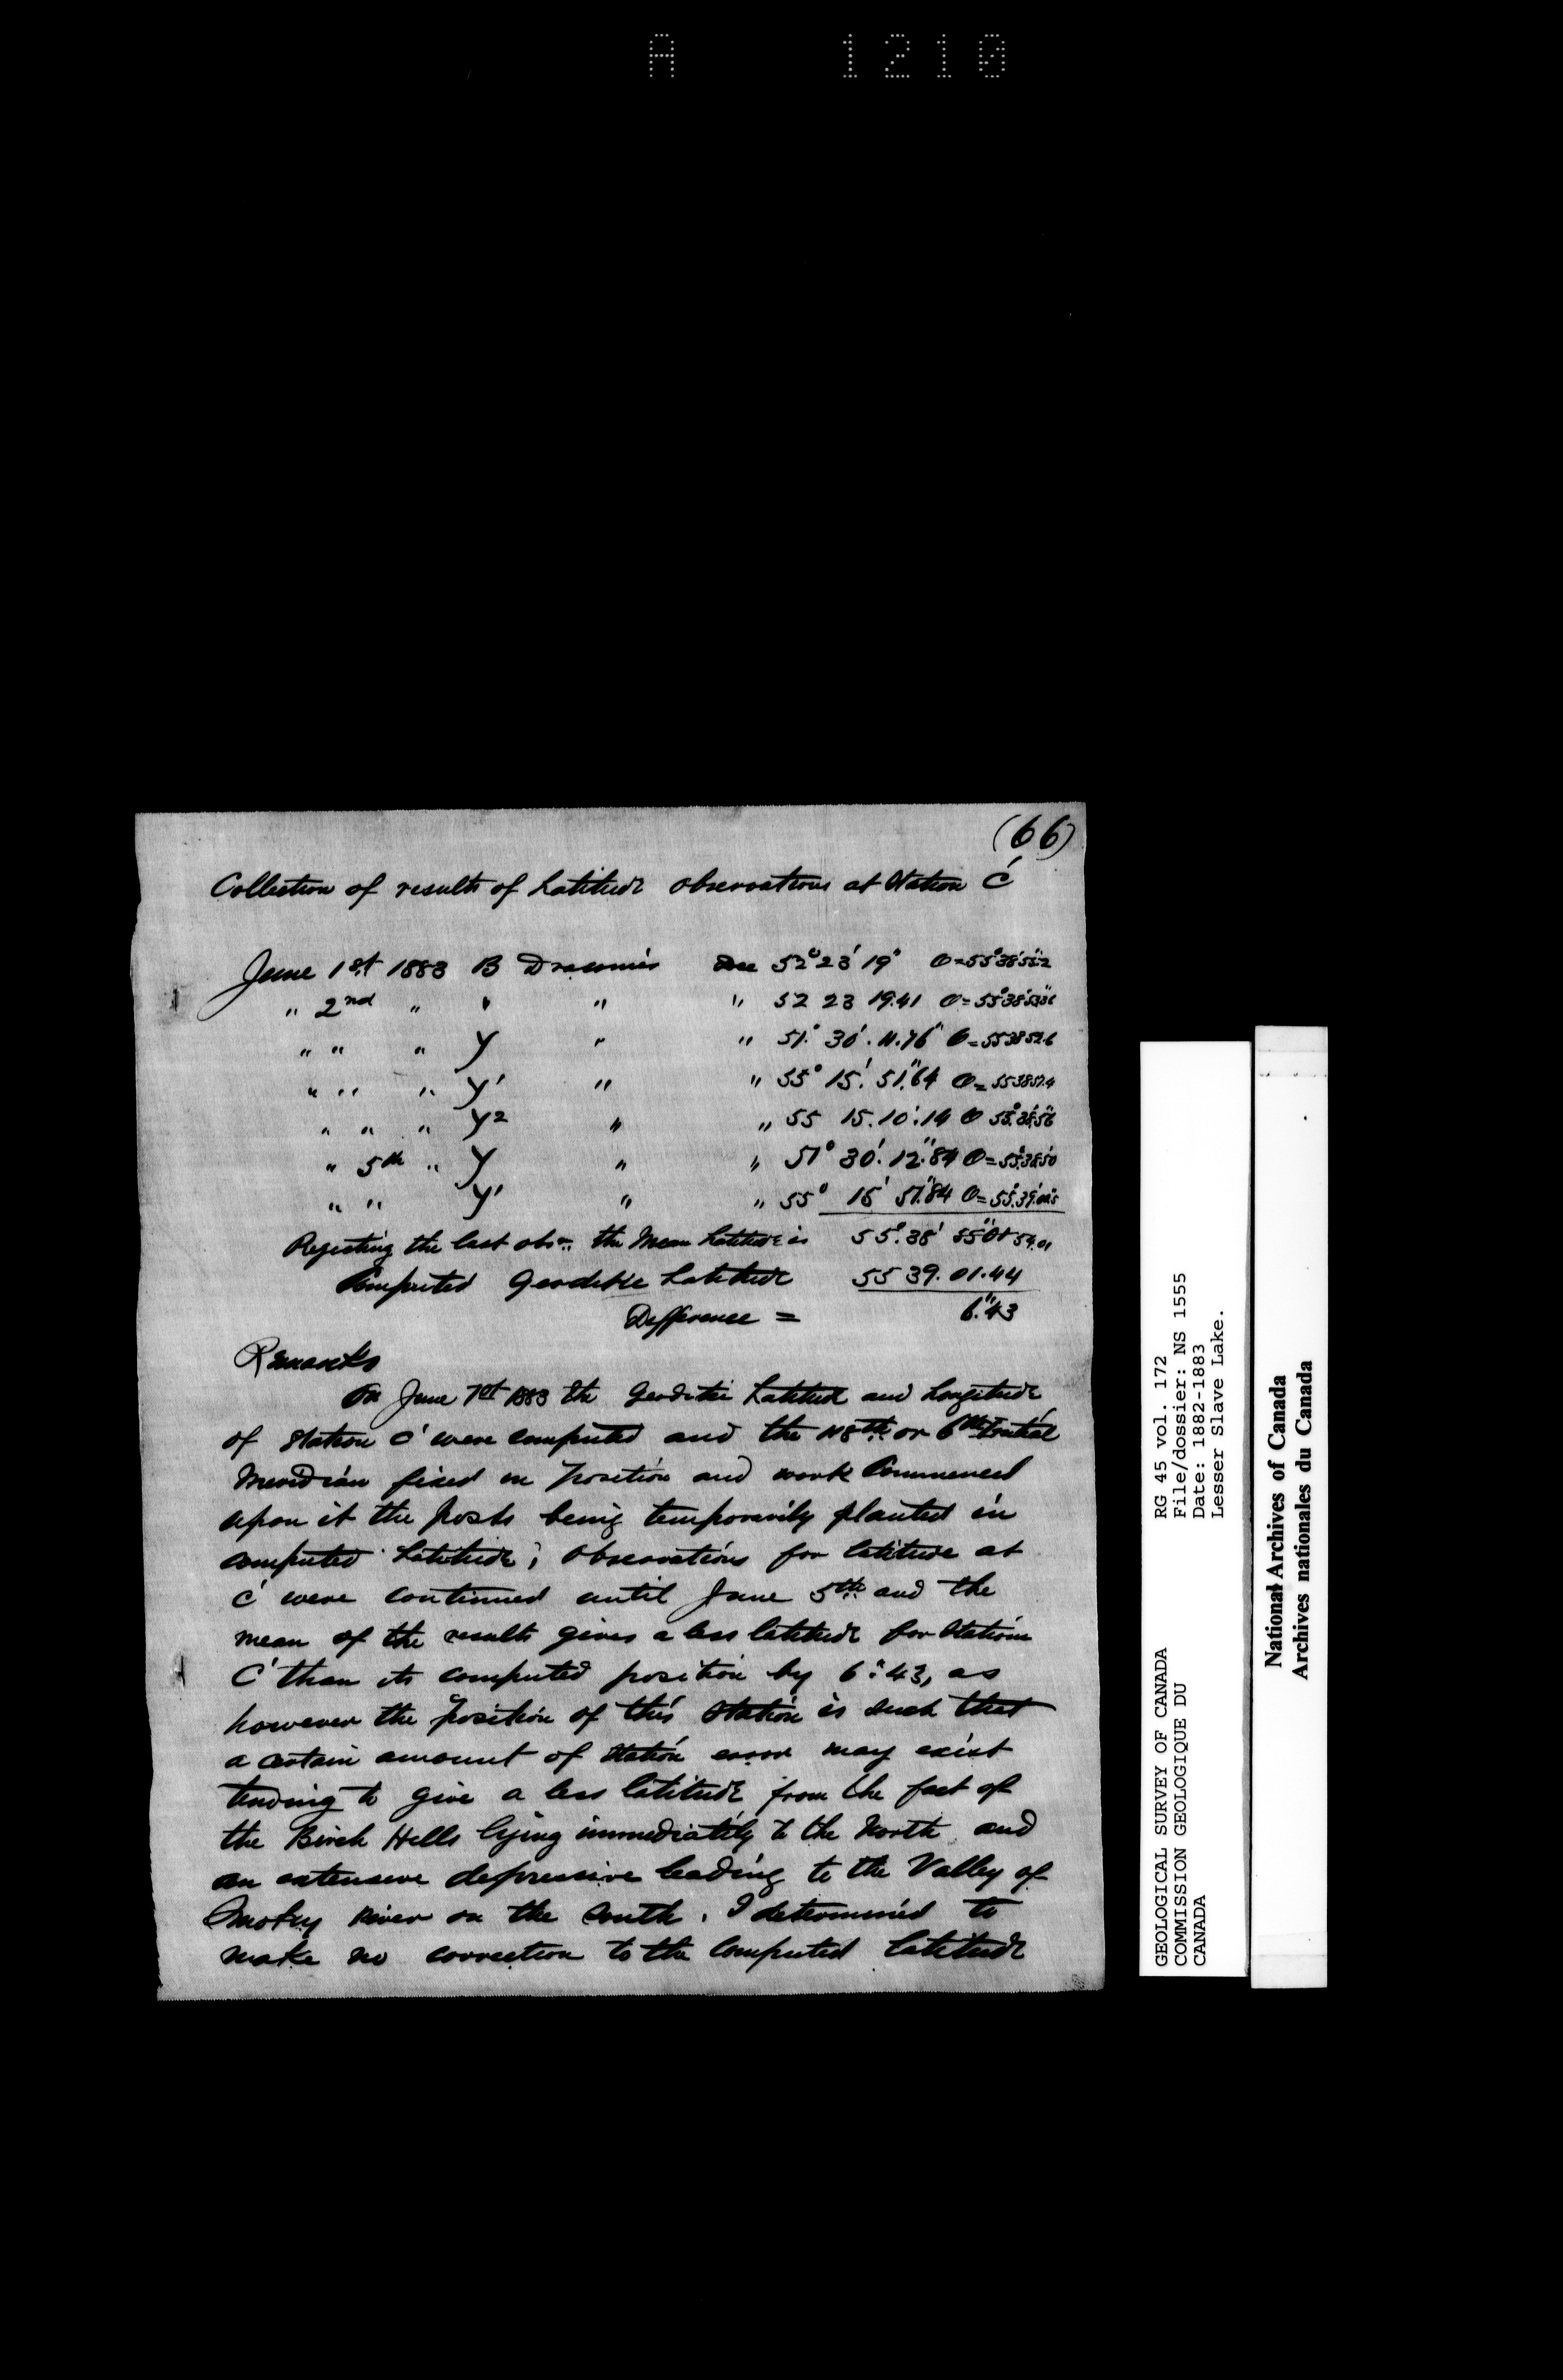 A 1210
(66)
Collection of results of Latitude observations at Station C'
June 1st 1883 B Draconis Dec 52° 23' 19"
" 2nd " " " " 52 23 19.41
" " " y " " 51° 30'. 11.76"
" " " y' " " 55° 15'. 51."64
" " " y2 " " 55 15. 10.14 55°.38'.56"
" 5th " y " " 51° 30'. 12."84 O=55°.38'.50
" " y' " " 55° 15' 51."84
Rejecting the last obsn. the Mean Latitude is 55°.38' 54.01
Computed Geodetic Latitude 55 39. 01.44
Difference = 6."43
Remarks
On June 1st 1883 the Geodetic Latitude and Longitude
of Station C' were computed and the 118th or 6th Initial
Meridian fixed in position and work commenced
upon it the posts being temporarily planted in
computed Latitude; observations for latitude at
C' were continued until June 5th and the
mean of the results gives a less latitude for Station
C' than its computed position by 6".43, as
however the position of this Station is such that
a certain amount of Station error may exist
tending to give a less latitude from the fact of
the Birch Hills lying immediately to the North and
an extensive depressive leading to the Valley of
Smoky River on the South. I determined to
make no correction to the Computed latitude
GEOLOGICAL SURVEY OF CANADA
COMMISSION GEOLOGIQUE DU
CANADA
RG 45 vol. 172
File/dossier: NS 1555
Date: 1882-1883
Lesser Slave Lake.
National Archives of Canada
Archives nationales du Canada